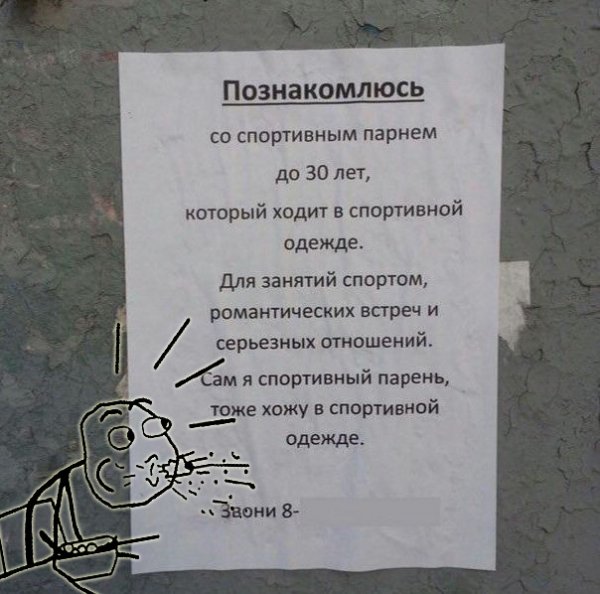 Познакомлюсь
со спортивным парнем
до 30 лет,
который ходит в спортивной
одежде.
Для занятий спортом,
романтических встреч и
серьезных отношений.
Сам я спортивный парень,
тоже хожу в спортивной
одежде.
Звони 8-